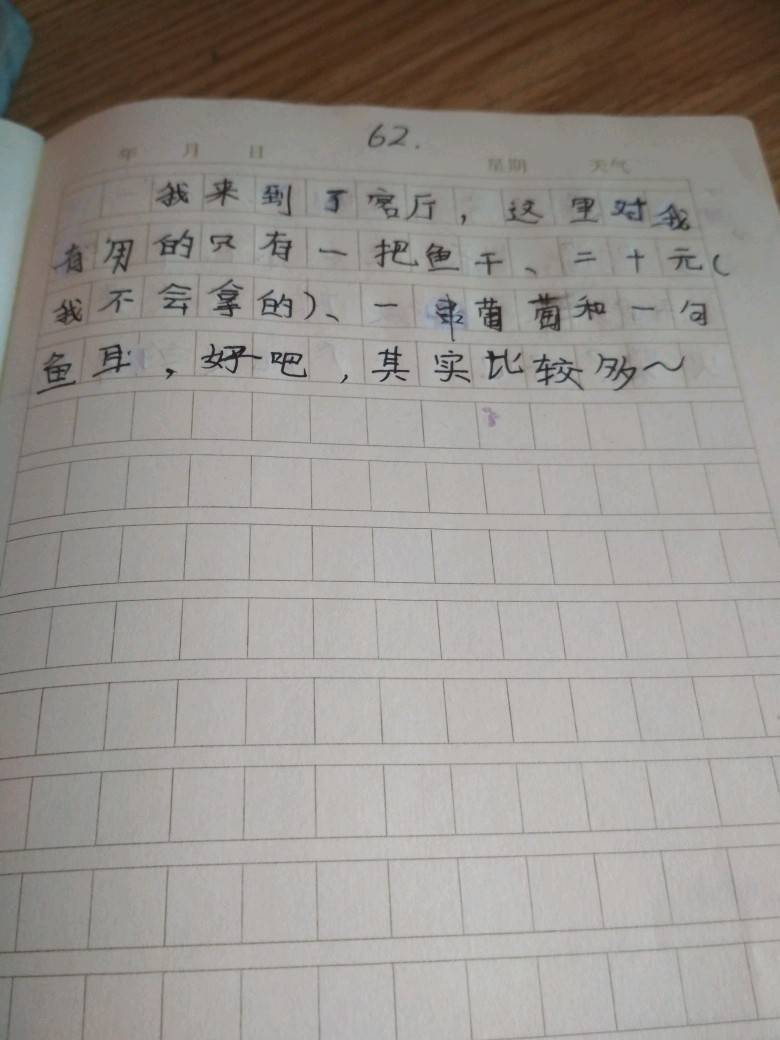 62.
年 月 日 星期 天气
我来到了客厅，这里对我
有用的只有一把鱼干、二十元（
我不会拿的）、一串葡萄和一句
鱼耳，好吧，其实比较多～